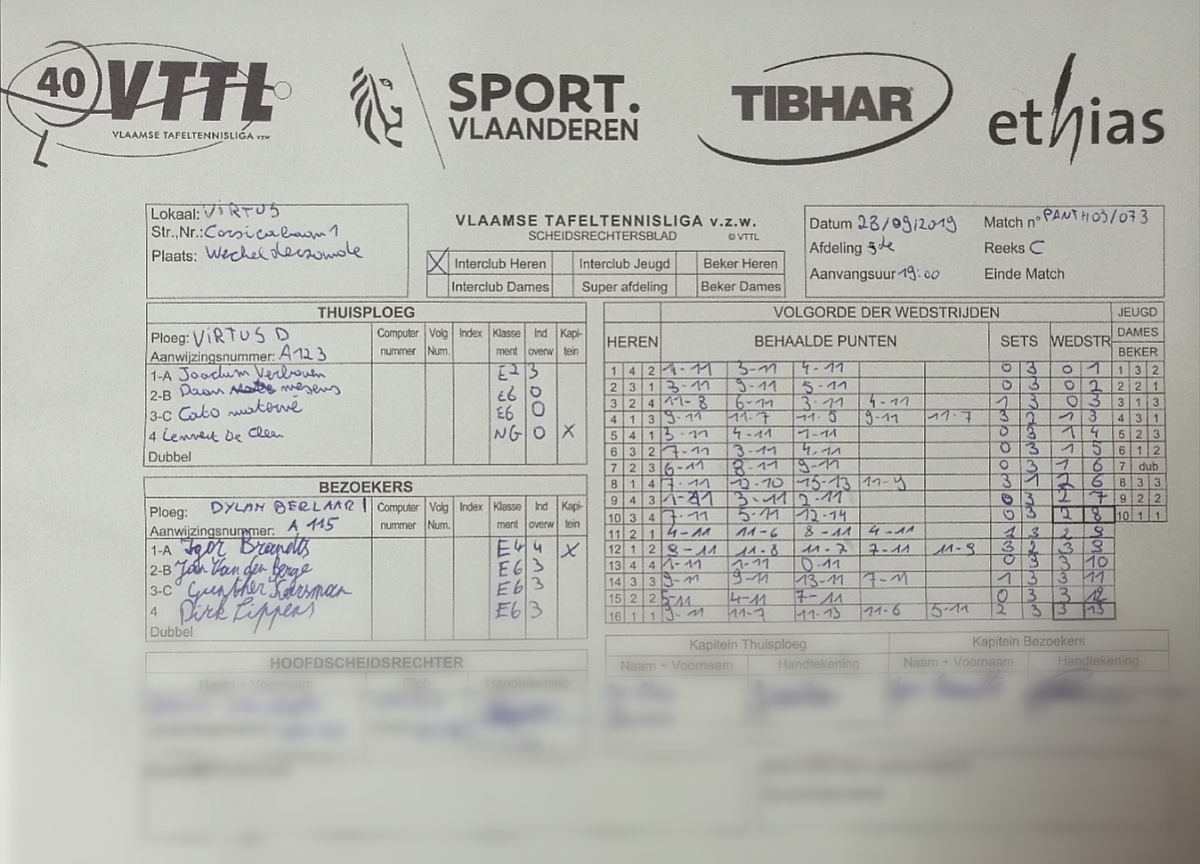 40 VTTL
VLAAMSE TAFELTENNISLIGA vzw
SPORT.
VLAANDEREN
TIBHAR
ethias
Lokaal: VIRTUS
Str.,Nr.: Corsicabaan 1
Plaats: Wechelderzande
VLAAMSE TAFELTENNISLIGA v.z.w.
SCHEIDSRECHTERSBLAD © VTTL
X Interclub Heren Interclub Jeugd Beker Heren
Interclub Dames Super afdeling Beker Dames
Datum 28/09/2019 Match n° PANTH03/073
Afdeling 3de Reeks C
Aanvangsuur 19:00 Einde Match
THUISPLOEG
Ploeg: VIRTUS D Computer nummer Volg Num. Index Klasse ment Ind overw Kapi- tein
Aanwijzingsnummer: A123
1-A Joachim Verhoven E2 3
2-B Daan mesens E6 0
3-C Cato matonné E6 0
4 Lennert De Cleen NG 0 X
Dubbel
BEZOEKERS
Ploeg: DYLAN BERLAAR I Computer nummer Volg Num. Index Klasse ment Ind overw Kapi- tein
Aanwijzingsnummer: A 115
1-A Igor Brandts E4 4 X
2-B Jan Van den Berge E6 3
3-C Gunther E6 3
4 Dirk Lippens E6 3
Dubbel
VOLGORDE DER WEDSTRIJDEN JEUGD
HEREN BEHAALDE PUNTEN SETS WEDSTR DAMES
BEKER
1 4 2 1-11 3-11 4-11 0 3 0 1 1 3 2
2 3 1 3-11 9-11 5-11 0 3 0 2 2 2 1
3 2 4 11-8 6-11 3-11 4-11 1 3 0 3 3 1 3
4 1 3 9-11 11-7 11-9 9-11 11-7 3 2 1 3 4 3 1
5 4 1 3-11 4-11 1-11 0 3 1 4 5 2 3
6 3 2 7-11 3-11 4-11 0 3 1 5 6 1 2
7 2 3 6-11 8-11 9-11 0 3 1 6 7 dub
8 1 4 7-11 12-10 15-13 11-9 3 1 2 6 8 3 3
9 4 3 1-11 3-11 2-11 0 3 2 7 9 2 2
10 3 4 7-11 5-11 12-14 0 3 2 8 10 1 1
11 2 1 4-11 11-6 8-11 4-11 1 3 2 9
12 1 2 9-11 11-8 11-7 7-11 11-9 3 2 3 9
13 4 4 1-11 1-11 0-11 0 3 3 10
14 3 3 9-11 9-11 13-11 7-11 1 3 3 11
15 2 2 5-11 4-11 7-11 0 3 3 12
16 1 1 9-11 11-7 11-13 11-6 5-11 2 3 3 13
HOOFDSCHEIDSRECHTER
Naam + Voornaam Club Handtekening
Kapitein Thuisploeg Kapitein Bezoekers
Naam + Voornaam Handtekening Naam + Voornaam Handtekening